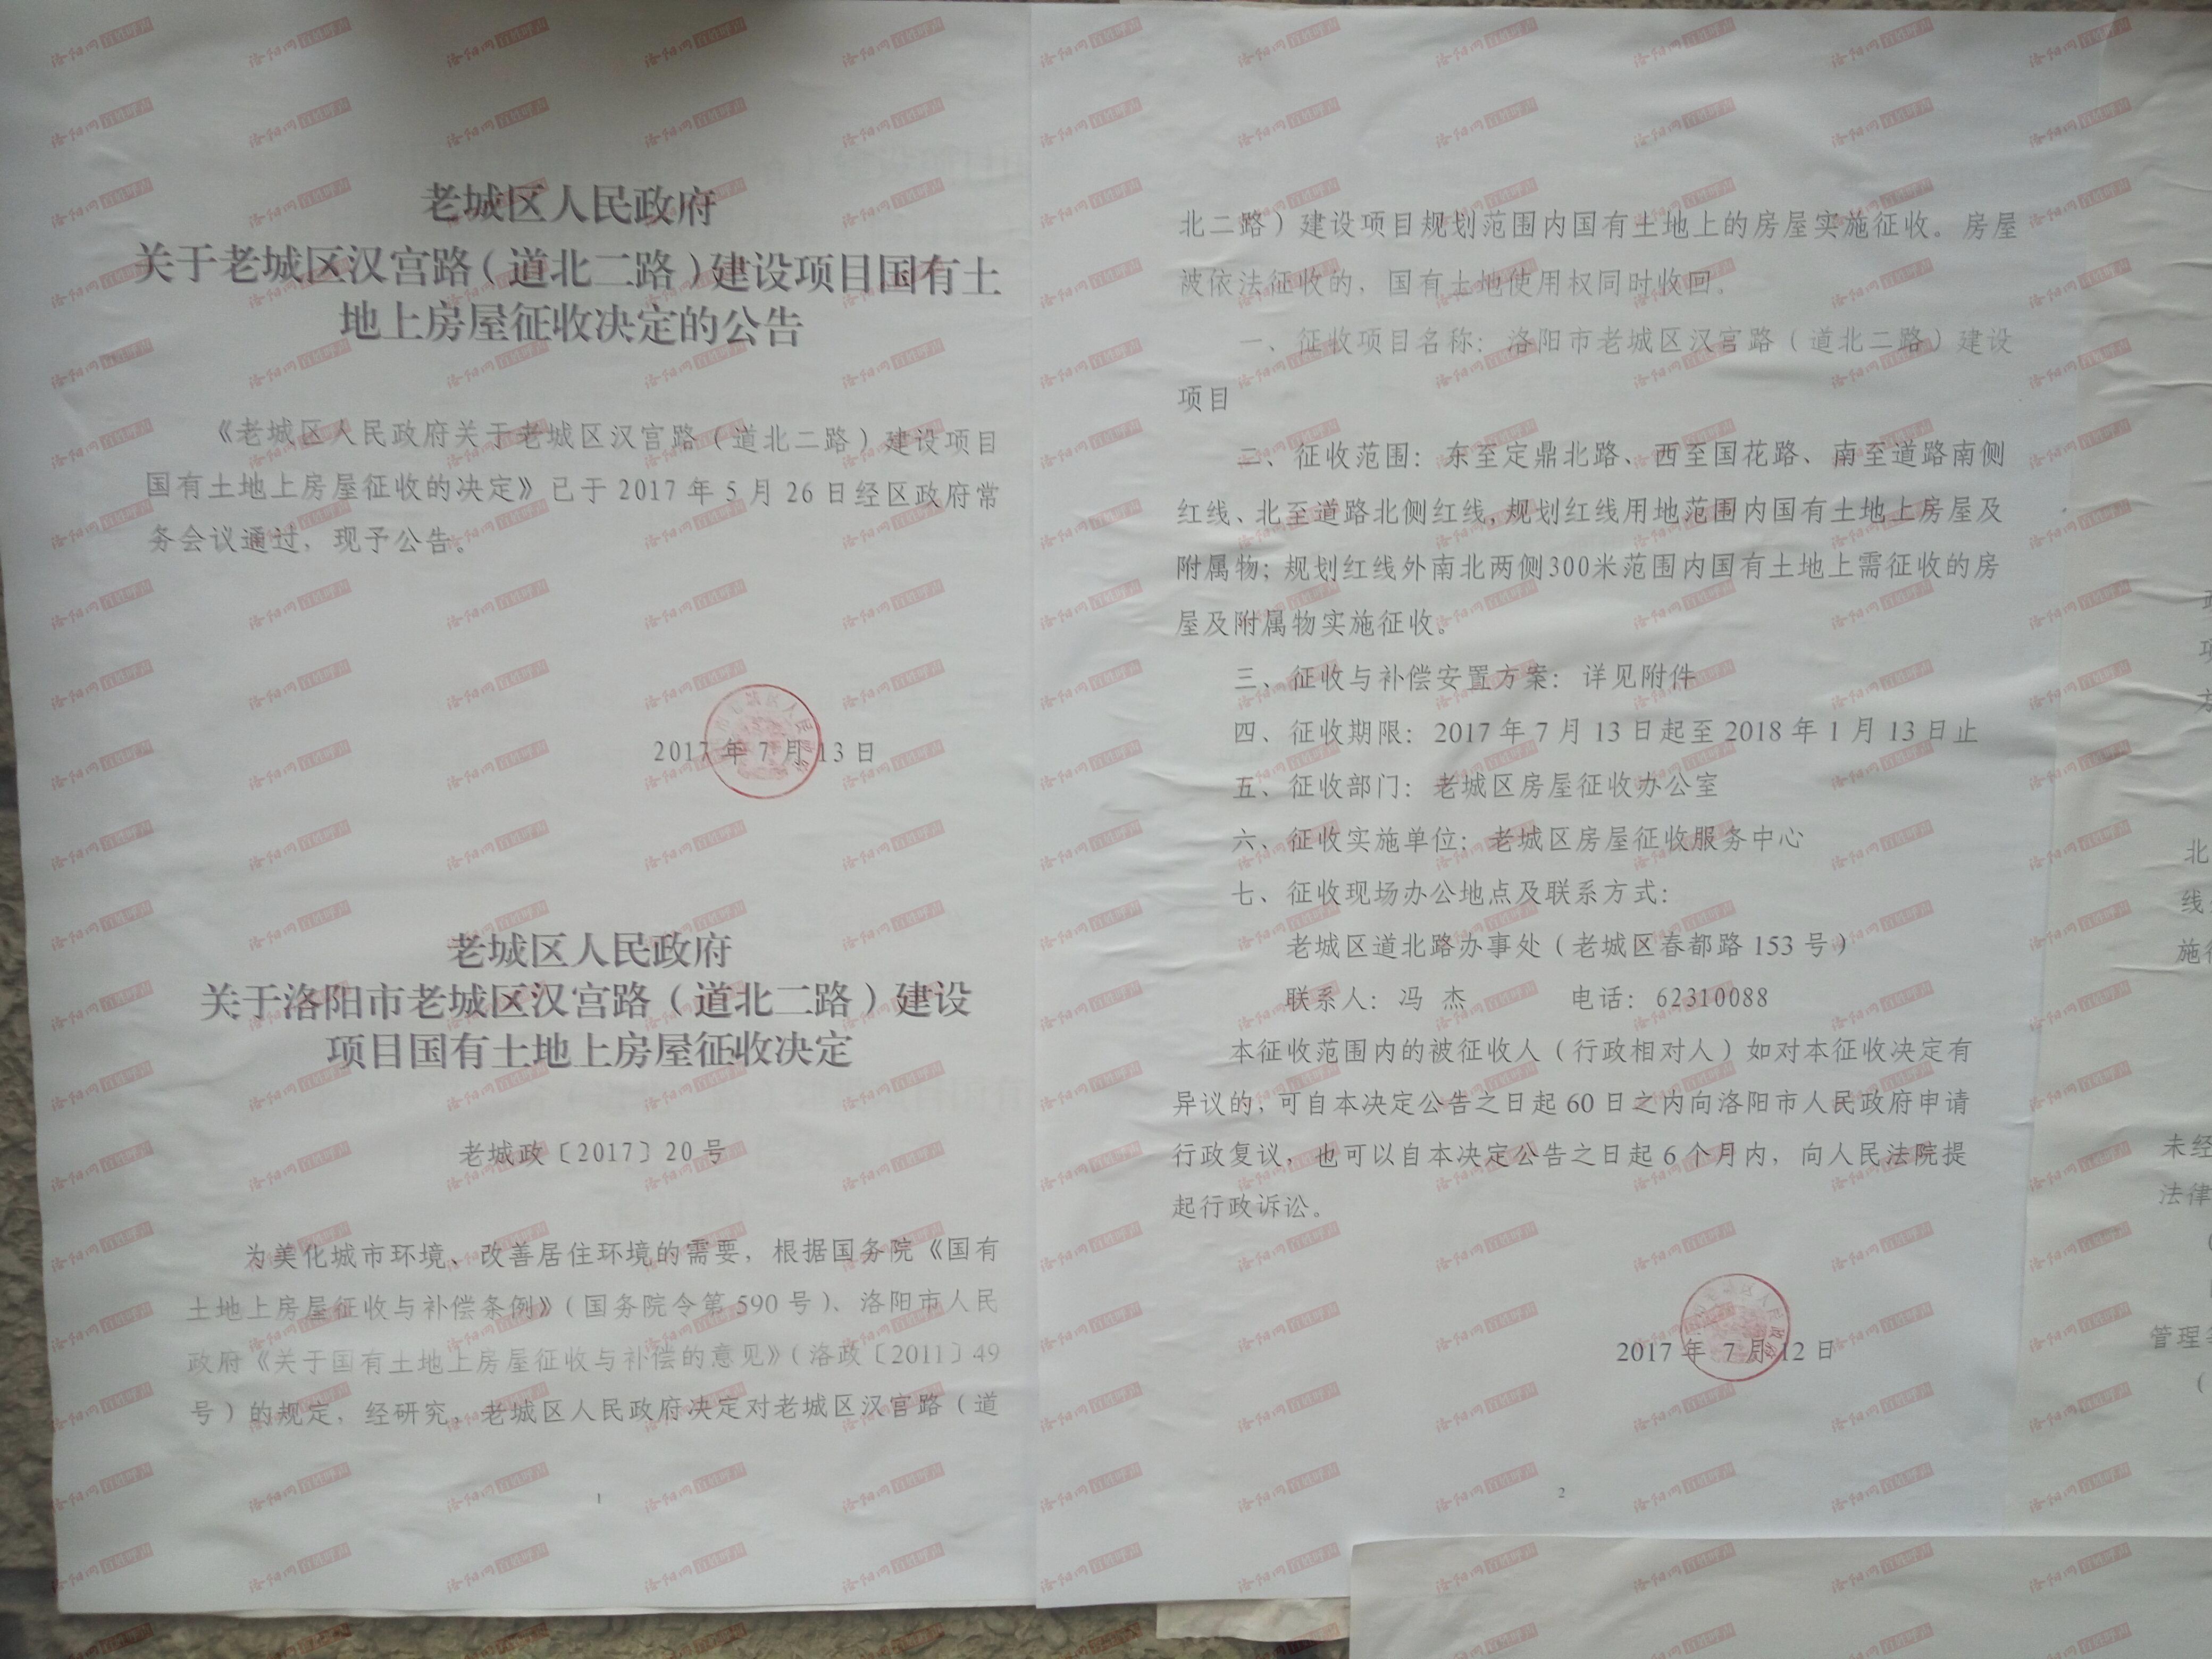 老城区人民政府
关于老城区汉宫路（道北二路）建设项目国有土
地上房屋征收决定的公告
《老城区人民政府关于老城区汉宫路（道北二路）建设项目
国有土地上房屋征收的决定》已于2017年5月26日经区政府常
务会议通过，现予公告。
2017年7月13日
老城区人民政府
关于洛阳市老城区汉宫路（道北二路）建设
项目国有土地上房屋征收决定
老城政〔2017〕20号
为美化城市环境、改善居住环境的需要，根据国务院《国有
土地上房屋征收与补偿条例》（国务院令第590号）、洛阳市人民
政府《关于国有土地上房屋征收与补偿的意见》（洛政〔2011〕49
号）的规定，经研究，老城区人民政府决定对老城区汉宫路（道
1
北二路）建设项目规划范围内国有土地上的房屋实施征收。房屋
被依法征收的，国有土地使用权同时收回。
一、征收项目名称：洛阳市老城区汉宫路（道北二路）建设
项目
二、征收范围：东至定鼎北路、西至国花路、南至道路南侧
红线、北至道路北侧红线，规划红线用地范围内国有土地上房屋及
附属物；规划红线外南北两侧300米范围内国有土地上需征收的房
屋及附属物实施征收。
三、征收与补偿安置方案：详见附件
四、征收期限：2017年7月13日起至2018年1月13日止
五、征收部门：老城区房屋征收办公室
六、征收实施单位：老城区房屋征收服务中心
七、征收现场办公地点及联系方式：
老城区道北路办事处（老城区春都路153号）
联系人：冯 杰 电话：62310088
本征收范围内的被征收人（行政相对人）如对本征收决定有
异议的，可自本决定公告之日起60日之内向洛阳市人民政府申请
行政复议，也可以自本决定公告之日起6个月内，向人民法院提
起行政诉讼。
2017年7月12日
2
北
线
施
未经
法律
管理
洛阳网 百姓呼声